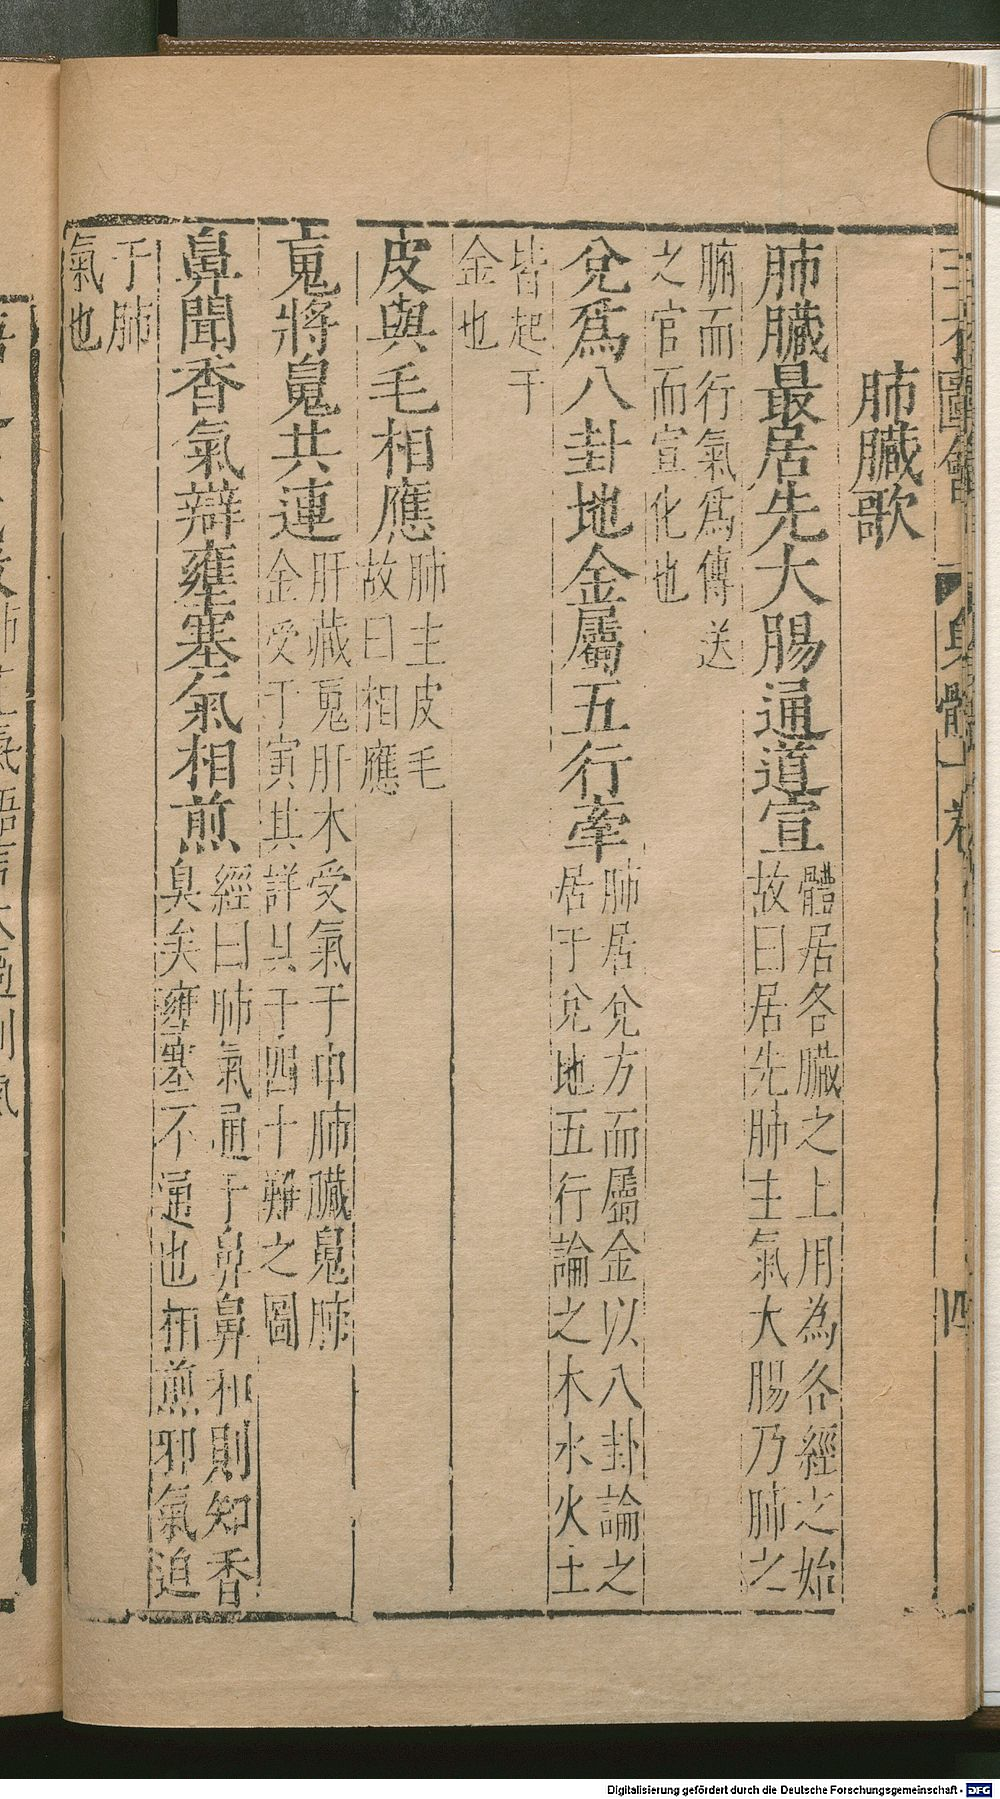 三才圖會 身體 卷 四
肺臟歌
肺臟最居先大腸通道宣 體居各臟之上用為各經之始
故曰居先肺主氣大腸乃肺之
腑而行氣爲傳送
之官而宣化也
兌爲八卦地金屬五行牽 肺居兌方而屬金以八卦論之
居于兌地五行論之木水火土
皆起于
金也
皮與毛相應 肺主皮毛
故曰相應
䰟將鬼共連 肝藏䰟肝木受氣于申肺臟鬼肺
金受于寅其詳具于四十難之圖
鼻聞香氣辯壅塞氣相煎 經曰肺氣通于鼻鼻和則知香
臭矣壅塞不通也相煎邪氣迫
于肺
氣也
Digitalisierung gefördert durch die Deutsche Forschungsgemeinschaft - DFG